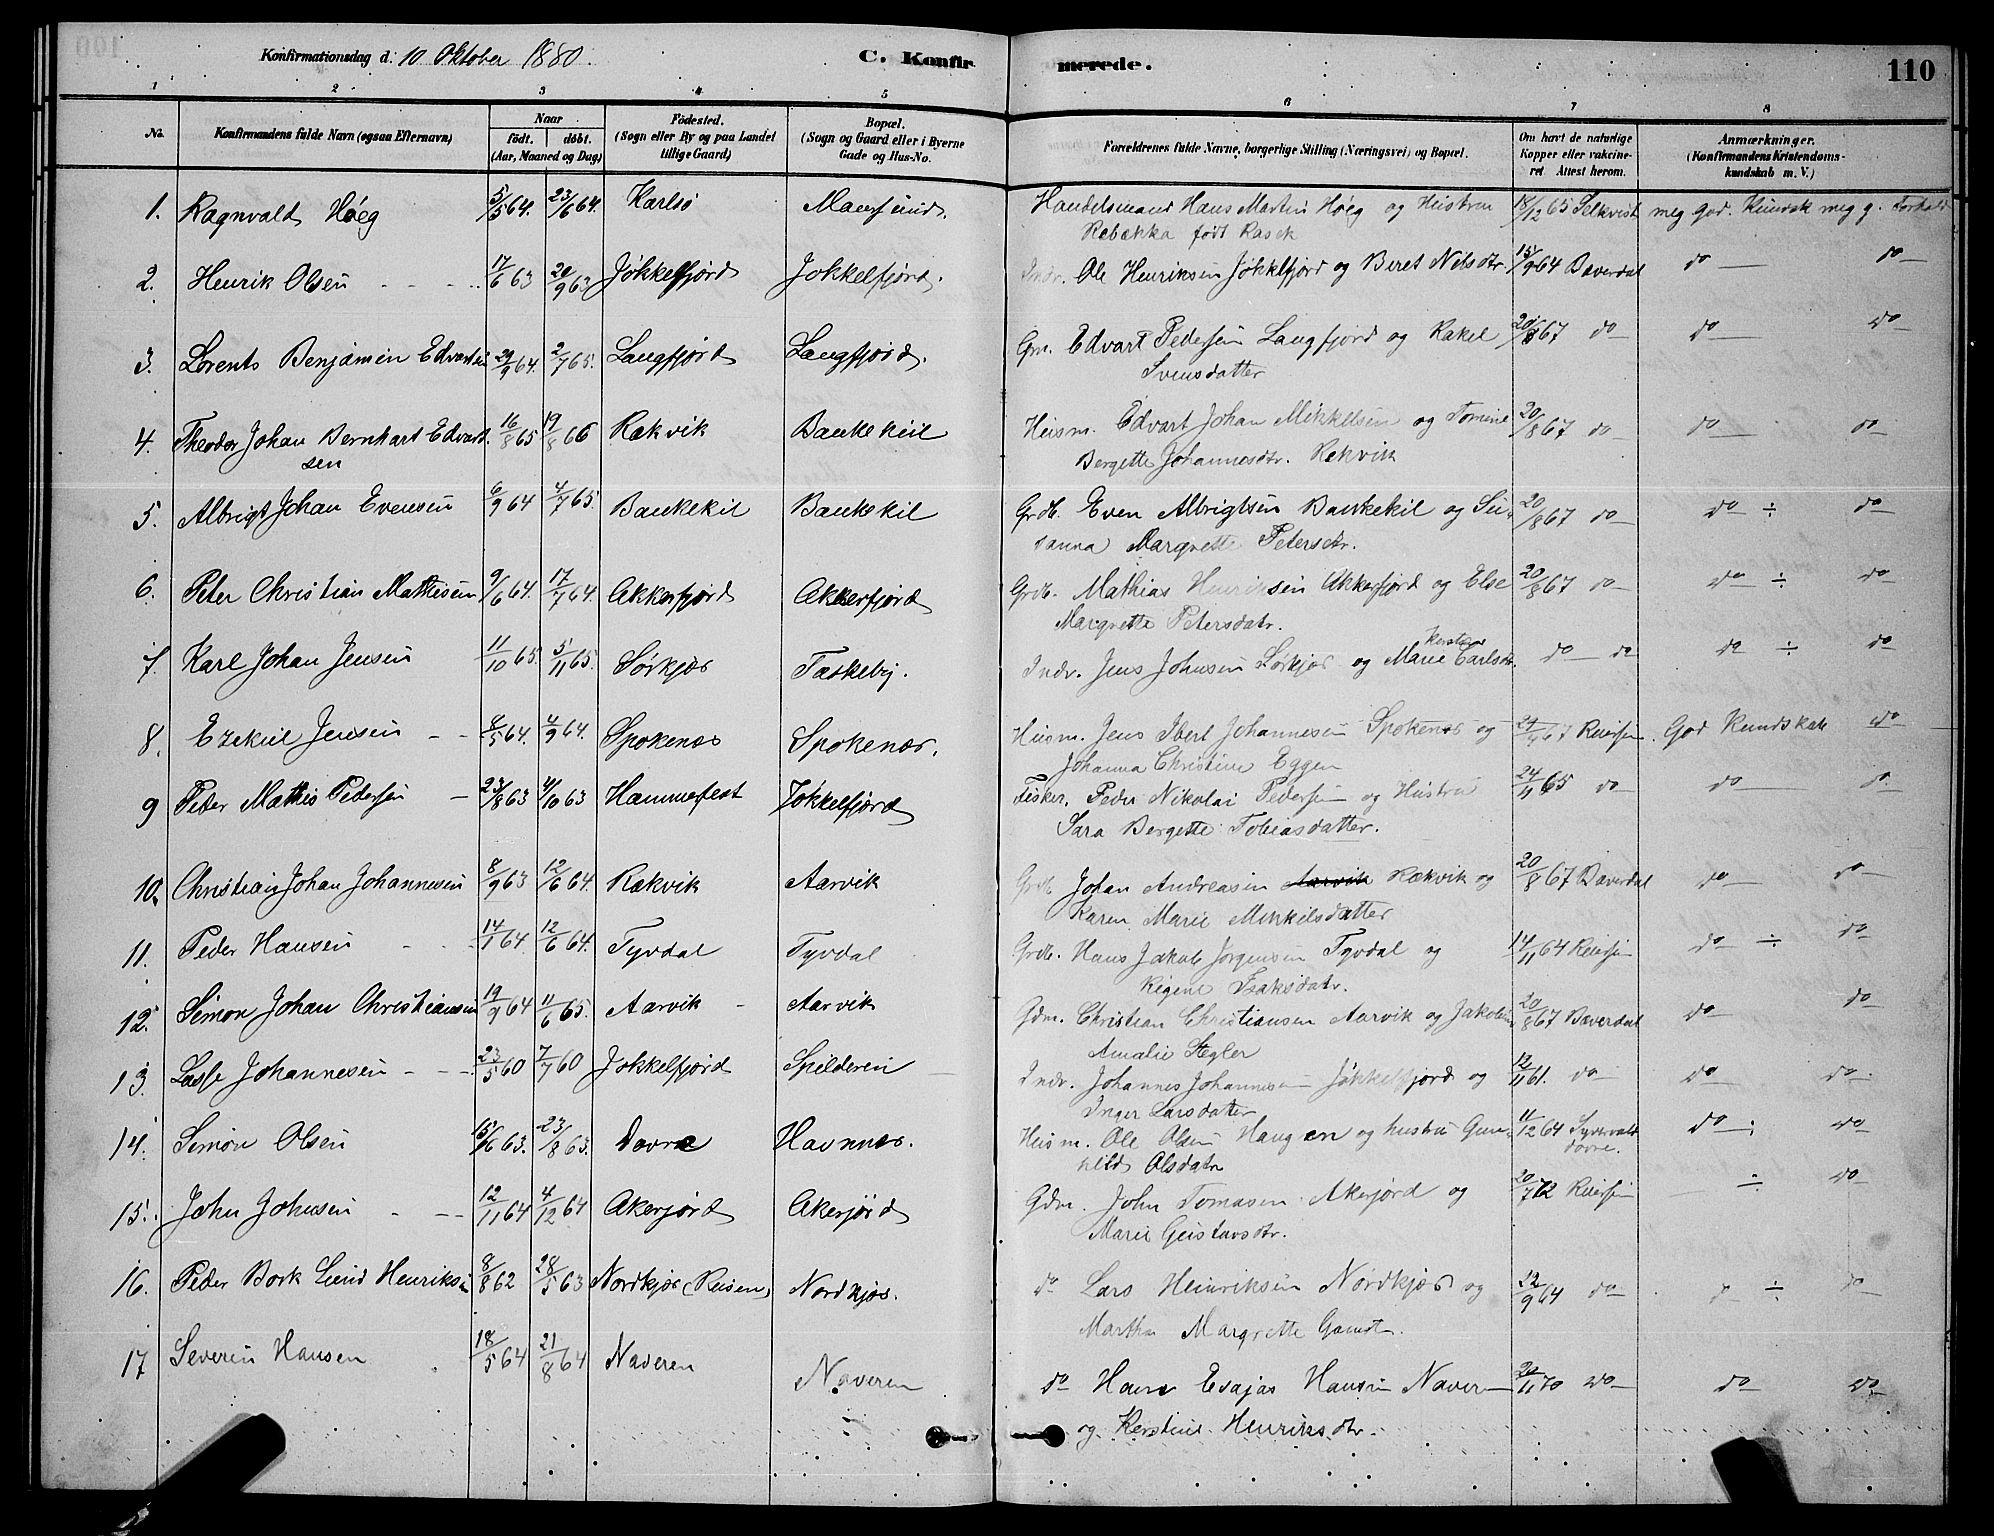 Konfirmationsdag d. 10 Oktober 1880. C. Konfirmerede. 110
1 2 3 4 5 6 7 8
No. Konfirmandens fulde Navn (ogsaa Efternavn) Naar födt. döbt. (Aar, Maaned og Dag) Födested. (Sogn eller By og paa Landet tillige Gaard) Bopæl. (Sogn og Gaard eller i Byerne Gade og Hus-No. Forældrenes fulde Navne, borgerlige Stilling (Næringsvei) og Bopæl. Om havt de naturlige Kopper eller vakcineret Attest herom. Anmærkninger. (Konfirmandens Kristendomskundskab m. V.)
1. Ragnvald Høeg 5/5 64. 23/6 64. Karlsö Handelsmand Hans Martin Høeg og Hustru 18/12 65 Selkvist meg god. Kundsk meg g. Forhold
Rebækka født Rasch
2. Henrik Olsen 17/6 63 20/9 63 Jökkelfjord Jokkelfjörd. Indr. Ole Henriksen Jökkelfjord og Beret Nilsdtr. 15/9 64 Bæverdal do do
3. Lorents Benjamin Edvartsen 29/9 64. 2/7 65. Langfjord Langfjord. Grm. Edvart Pedersen Langfjord og Rakel 20/8 67 do do do
Svensdatter
4. Theodor Johan Bernhart Edvart 16/8 65 19/8 66 Rækvik Baukekeil Husm. Edvart Johan Mikkelsen og Tomine 20/8 67 do do do
sen Bergette Johannesdtr. Rekvik
5. Albrigt Johan Evensen 6/9 64 4/7 65. Baukekil Baukekil Grdb. Even Albrigtsen Baukekil og Su- 20/8 67 do do ÷ do
sanna Margrette Petersdtr.
6. Peter Christian Mathisen 9/6 64. 17/7 64. Akkerfjord Akkerfjord Grdb. Mathias Henriksen Akkerfjord og Else 20/8 67 do do ÷ do
Margrette Petersdatr.
7. Karl Johan Jensen 11/10 65. 5/11 65. Sörkjos Taskeby. Indr. Jens Johnsen Sörkjos og Marie Carlsdtr. do do do ÷ do
8. Ezekiel Jensen 8/5 64. 4/9 64. Spokenes Spokenes. Husm. Jens Ibert Johannesen Spokenes og Reiersen God Kundskab do
Johanna Christine Eggen
9 Peder Mathis Pedersen 23/8 63 4/10 63 Hammerfest Jökkelfjord Fisker. Peder Nikolai Pedersen og Hustru 24/11 65 do do do
Sara Bergette Tobiasdatter.
10. Christian Johan Johannesen 8/9 63 12/6 64. Rækvik Aarvik Grdb. Johan Andreasen Aarvik Rækvik og 20/8 67 Bæverdal do do
Karen Marie Mikkilsdatter
11. Peder Hansen 14/1 64 12/6 64. Tyvdal Tyvdal Grdb. Hans Jakob Jörgensen Tyvdal og 14/11 64 Reiersen do ÷ do
Regine Isaksdatr.
12. Simon Johan Christiansen 19/9 64 11/6 65. Aarvik Aarvik Gdm. Christian Christiansen Aarvik og Jakobine 20/8 67 Bæverdal do do
Amalie Stegler
13. Lasse Johannesen 23/5 60 7/7 60 Jokkelfjord Spilderen Indr. Johannes Johannesen Jökkelfjord og 12/11 61. do do do
Inger Larsdatter
14. Simon Olsen 15/6 63. 23/8 63. Dovre Havnnes. Husm. Ole Olsen Haugen og hustru Gun- 11/12 64 do do
hild Olsdatr Dovre.
15. John Johnsen 12/11 64 4/12 64 Akerjord Akerjord Gdm. John Tomasen Akerjord og 20/7 72 Reiersen ÷ do
Marie Gustavsdtr.
16. Peder Bork Lund Henriksen 8/8 62 28/5 63 Nordkjos (Reisen) Nordkjos. do Lars Heinriksen Nordkjos og 12/9 64 do do ÷ do
Martha Margrette
17 Severin Hansen 18/5 64 21/8 64 Naveren Naveren do Hans Esajas Hansen Naveren do do do
og Kerstine Henriksdtr.